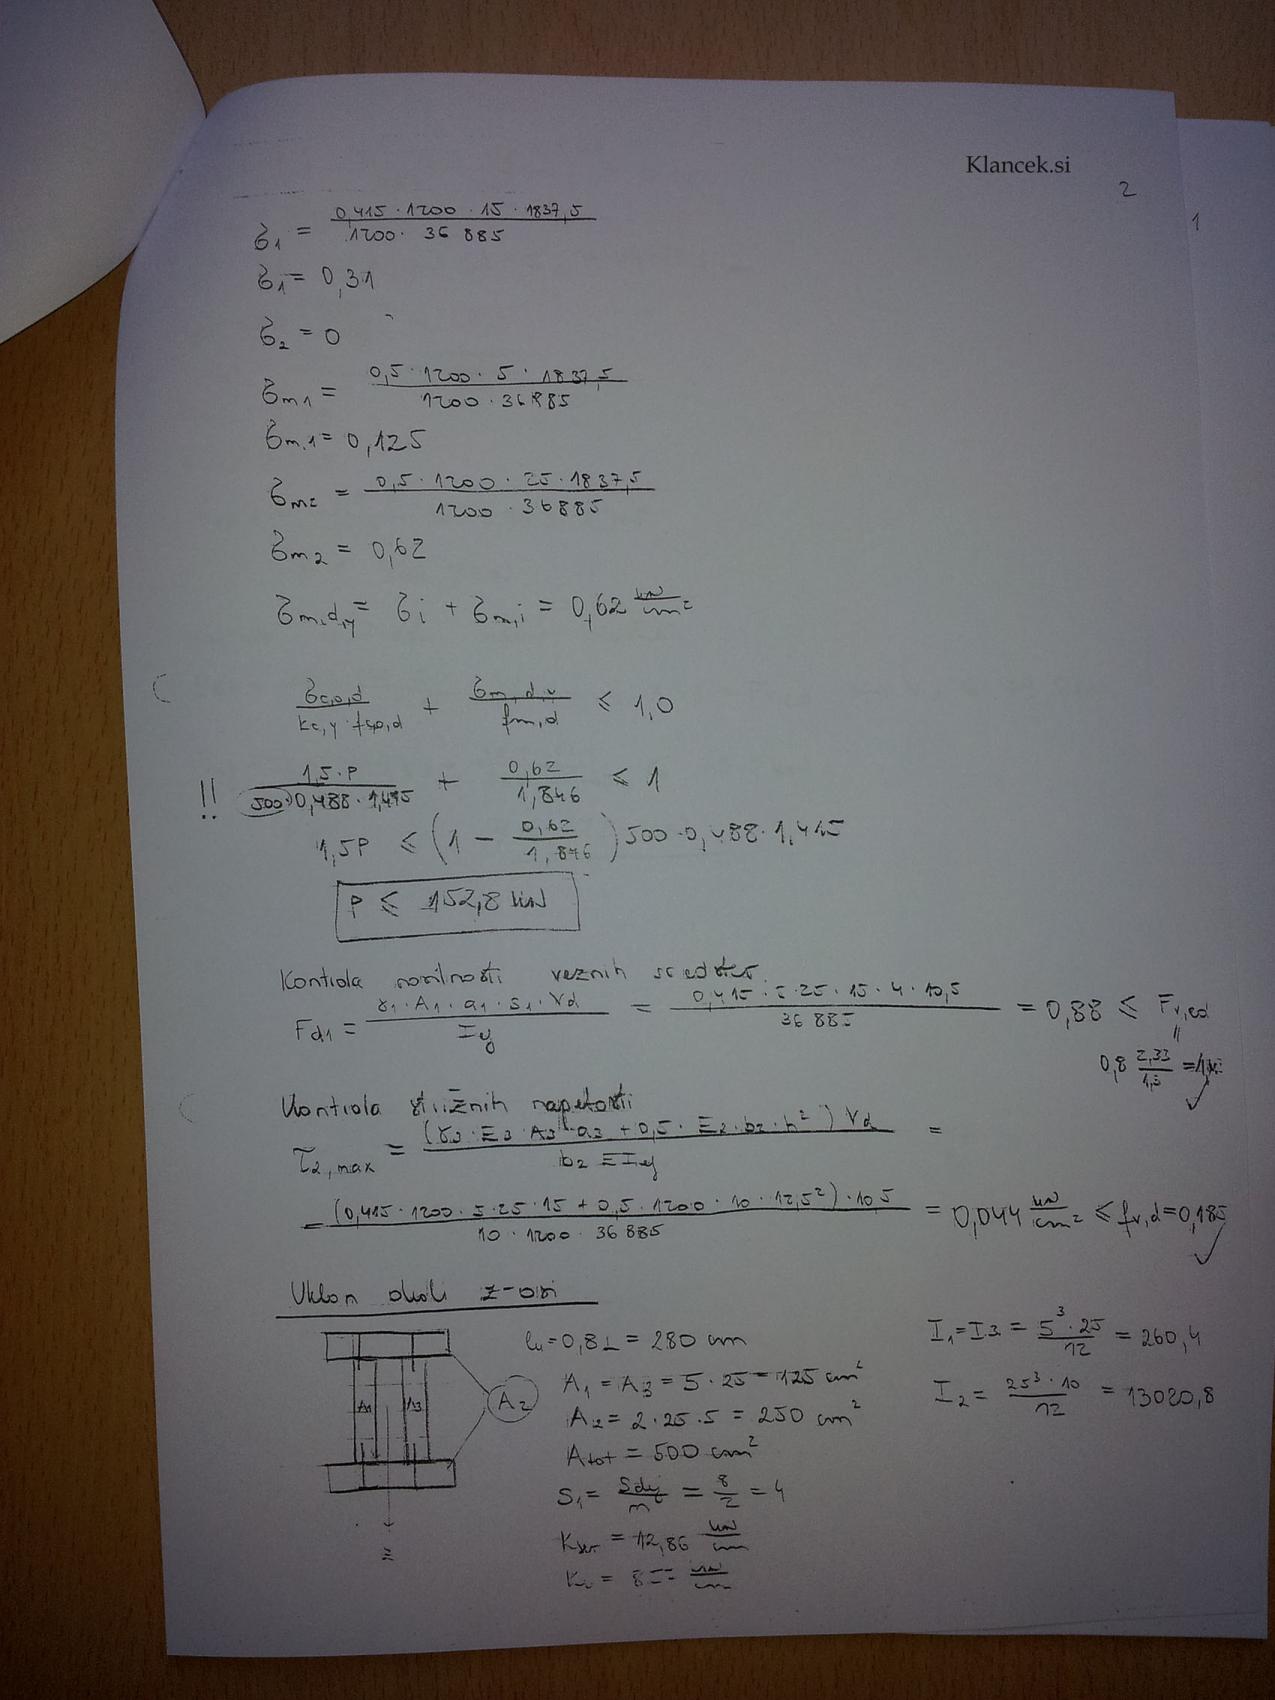 Klancek.si
2
1
σ₁ = (0,415 · 1200 · 15 · 1837,5) / (1200 · 36 885)
σ₁ = 0,31
σ₂ = 0
σm1 = (0,5 · 1200 · 5 · 1837,5) / (1200 · 36885)
σm,1 = 0,125
σm2 = (0,5 · 1200 · 25 · 1837,5) / (1200 · 36885)
σm2 = 0,62
σm,d,y = σi + σm,i = 0,62 kN/cm²
σc,0,d / (kc,y · fc,0,d) + σm,d,y / fm,d ≤ 1,0
!! 1,5·P / (500 · 0,488 · 1,415) + 0,62 / 1,846 ≤ 1
1,5P ≤ (1 − 0,62 / 1,846) 500 · 0,488 · 1,415
P ≤ 152,8 kN
Kontrola nosilnosti veznih sredstev
Fd1 = (γ₁ · A₁ · a₁ · s₁ · Vd) / Iy = (0,415 · 5 · 25 · 15 · 4 · 10,5) / 36 885 = 0,88 ≤ Fv,Rd
0,8 2,33 / 1,3 = ✓
Kontrola strižnih napetosti
τ2,max = (γ3 · E3 · A3 · a3 + 0,5 · E2 · b2 · h²) Vd / b2 EIy =
= (0,415 · 1200 · 5 · 25 · 15 + 0,5 · 1200 · 10 · 12,5²) · 10,5 / (10 · 1200 · 36 885) = 0,044 kN/cm² ≤ fv,d = 0,185 ✓
Uklon okoli z-osi
lu = 0,8L = 280 cm
A₁ = A₃ = 5 · 25 = 125 cm²
A₂ = 2 · 25 · 5 = 250 cm²
Atot = 500 cm²
S₁ = Sdej / m = 8/2 = 4
Kser = 12,86 kN/cm
I₁ = I3 = 5³ · 25 / 12 = 260,4
I₂ = 25³ · 10 / 12 = 13020,8
A1
A3
A2
z